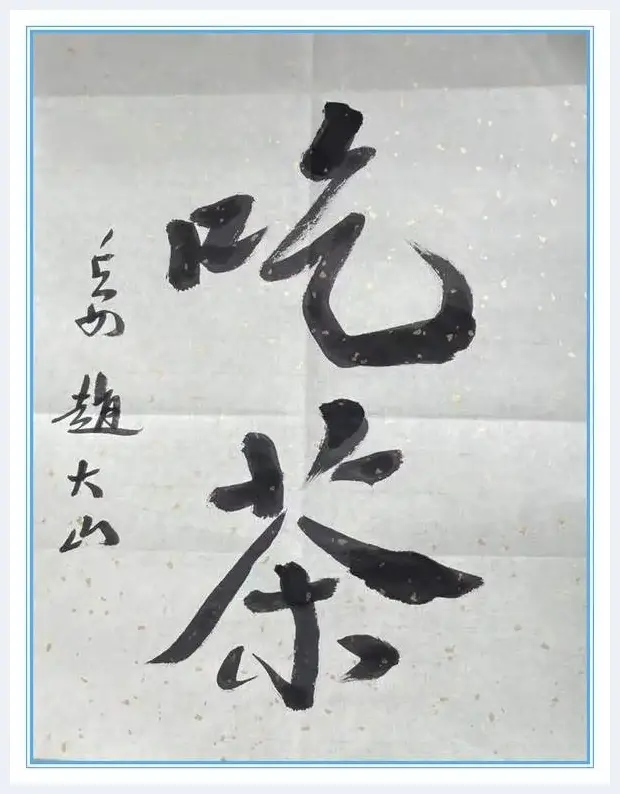 吃茶
趙大山